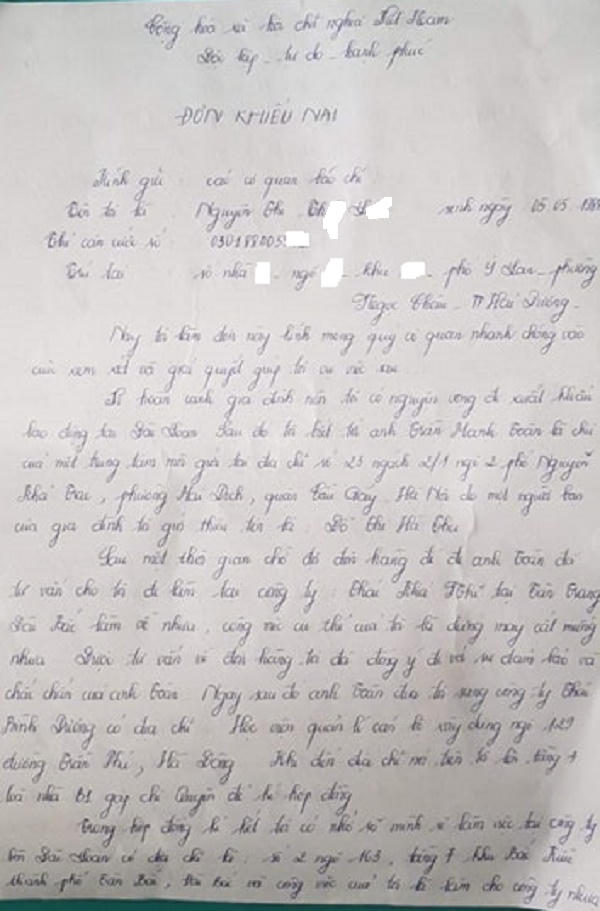 Cộng hòa xã hội chủ nghĩa Việt Nam
Độc lập - tự do - hạnh phúc
ĐƠN KHIẾU NẠI
Kính gửi : các cơ quan báo chí
Tên tôi là Nguyễn Thị sinh ngày 05.05.
Thẻ căn cước số : 030188005
Trú tại số nhà - ngõ - khu - phố Ỷ Lan - phường
Ngọc Châu - TP Hải Dương -
Nay tôi làm đơn này kính mong quý cơ quan nhanh chóng vào
cuộc xem xét và giải quyết giúp tôi vụ việc sau.
Vì hoàn cảnh gia đình nên tôi có nguyện vọng đi xuất khẩu
lao động tại Đài Loan. Sau đó tôi biết tới anh Trần Mạnh Toàn là chủ
của một trung tâm môi giới tại địa chỉ số 23 ngách 2/1 ngõ 2 phố Nguyễn
Khả Trạc, phường Mai Dịch, quận Cầu Giấy Hà Nội do một người bạn
của gia đình tôi giới thiệu tên là : Đỗ Thị Hà Thu
Sau một thời gian chờ đợi đơn hàng để đi anh Toàn đã
tư vấn cho tôi đi làm tại công ty : Khải Thi tại Tân Trang
Đài Bắc làm về nhựa, công việc cụ thể của tôi là đứng máy cắt miếng
nhựa Dưới tư vấn về đơn hàng tôi đã đồng ý đi với sự đảm bảo và
chắc chắn của anh Toàn. Ngay sau đó anh Toàn đưa tôi sang công ty Thái
Bình Dương có địa chỉ : Học viện quản lí cán bộ xây dựng ngõ 129
đường Trần Phú, Hà Đông Khi đến địa chỉ nói trên tôi lên tầng 7
toà nhà B1 gặp chị Quyên để kí hợp đồng
Trong hợp đồng kí kết tôi có nhớ rõ mình sẽ làm việc tại công ty
bên Đài Loan có địa chỉ là : số 2 ngõ 163, tầng 7 khu Bắc
thành phố Tân Bắc, Đài Bắc và công việc của tôi là làm cho công ty nhựa